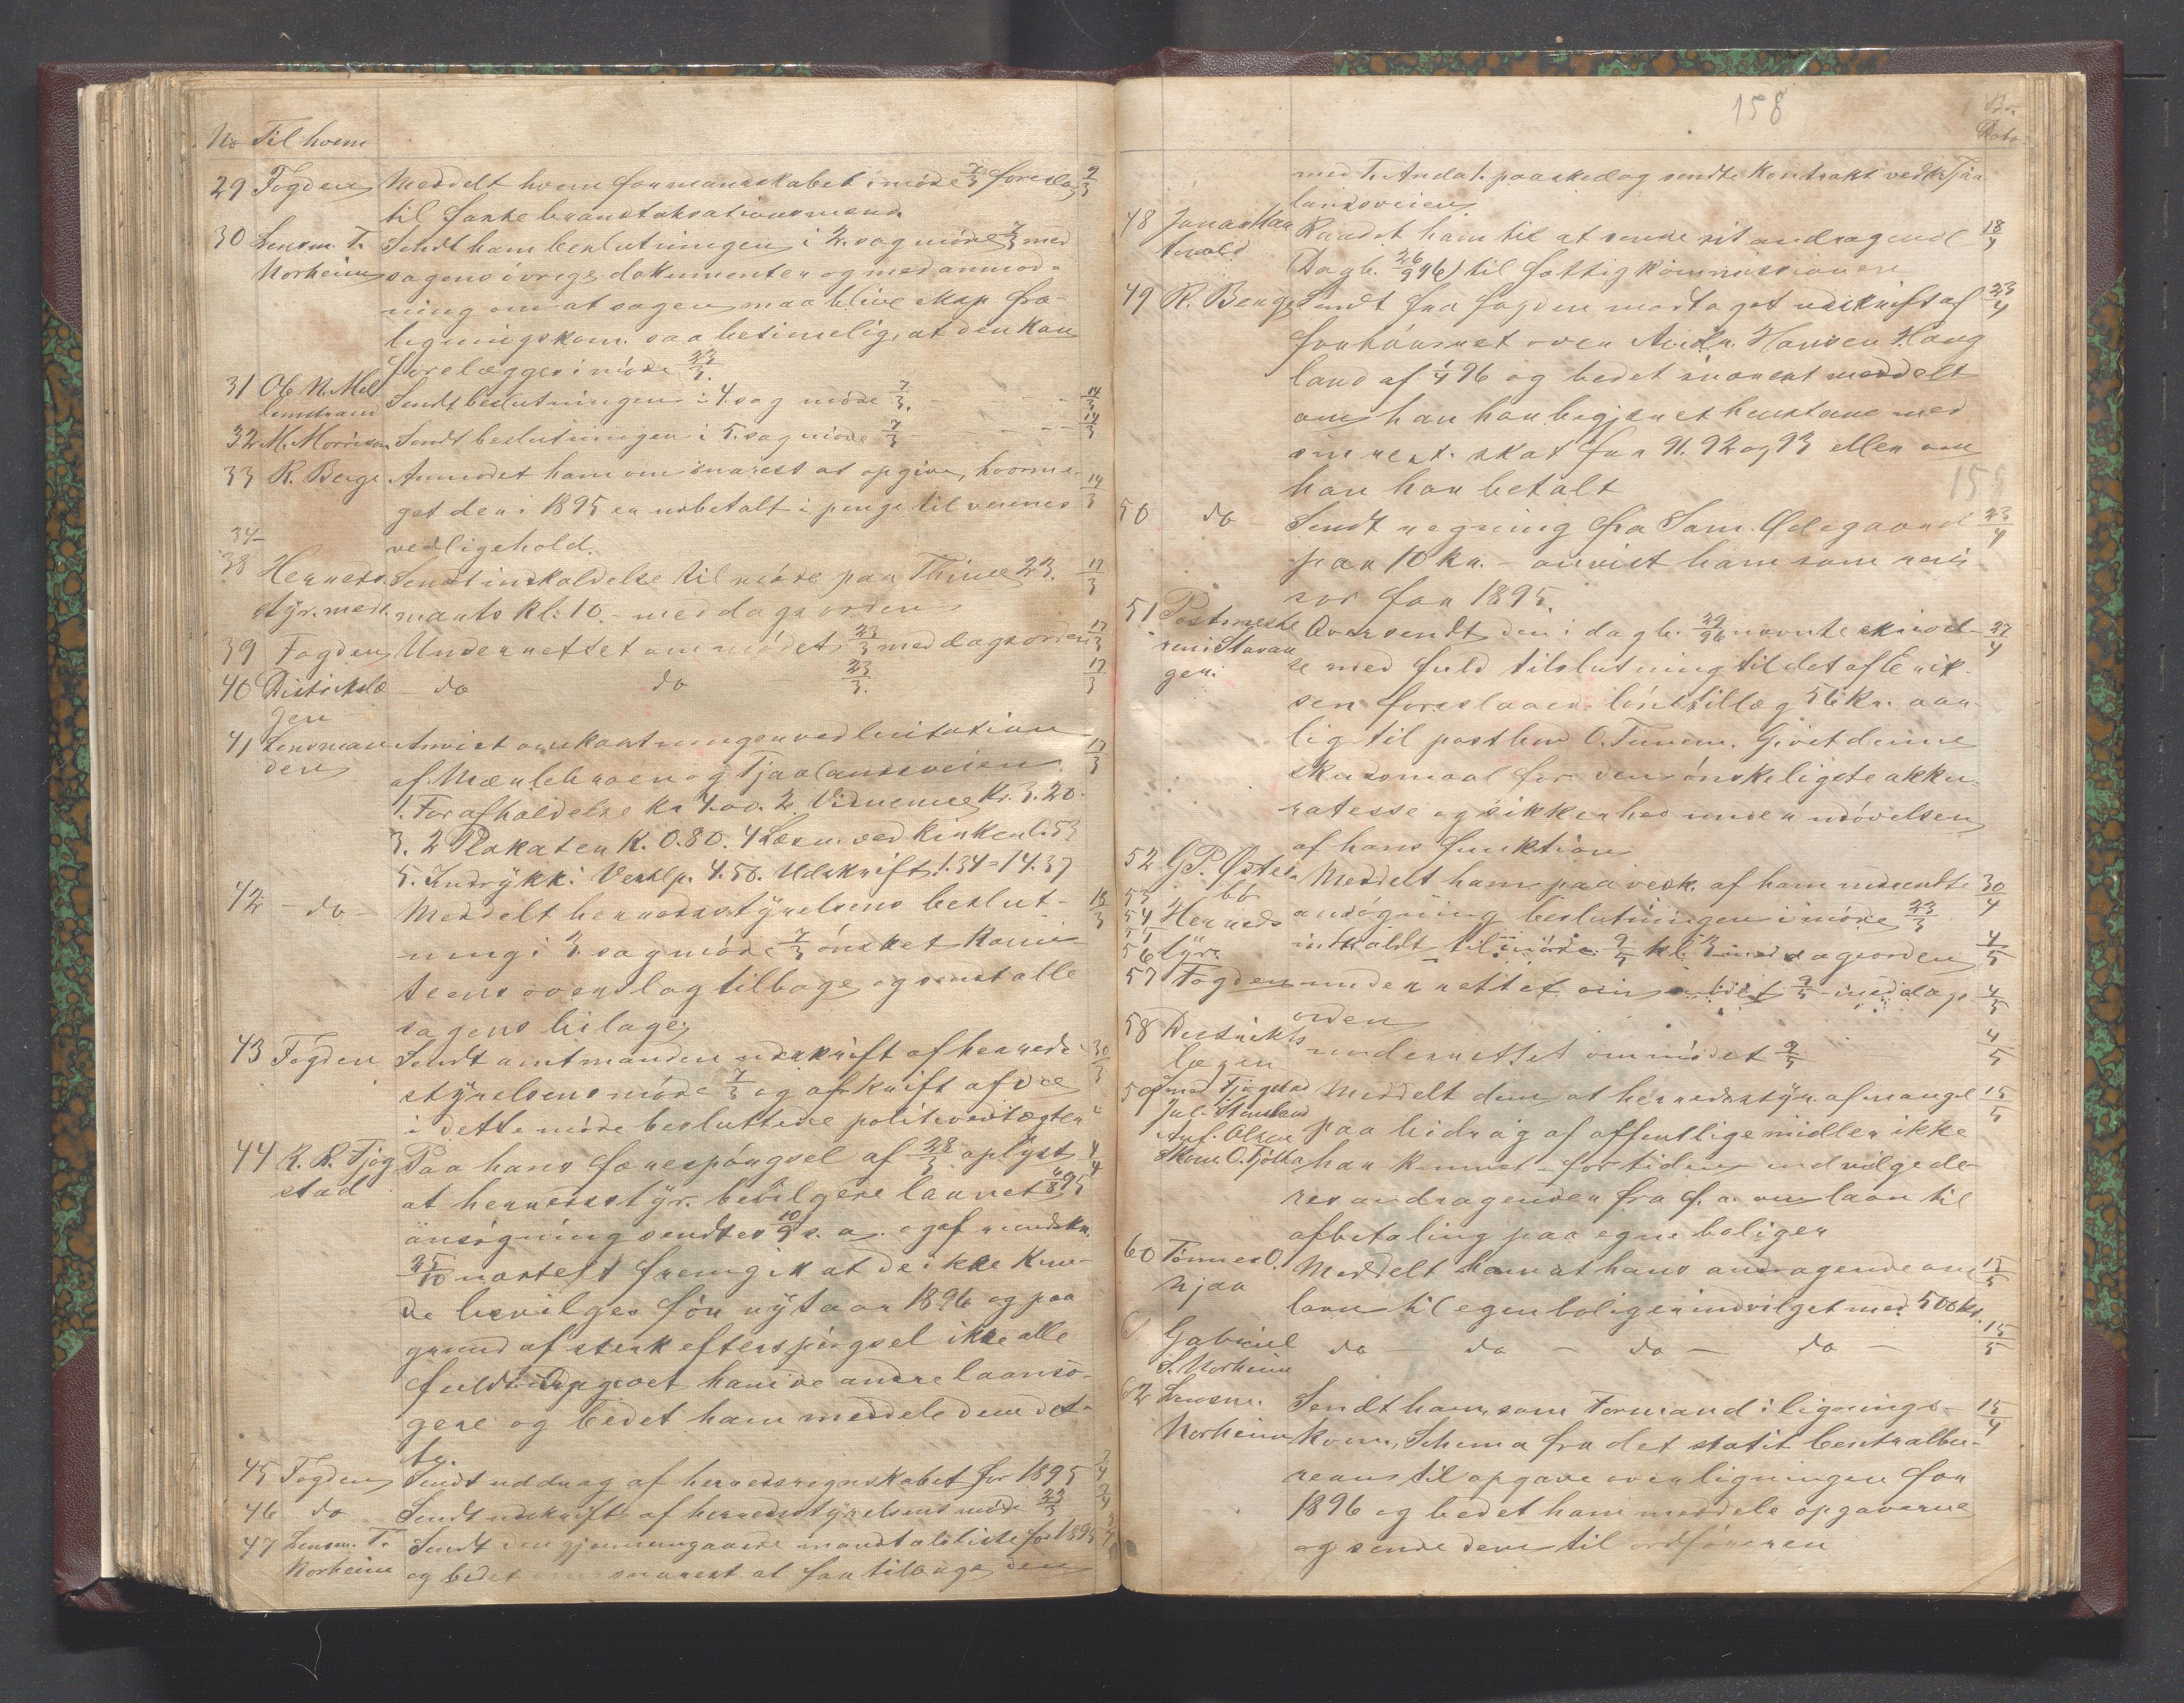 No Til hvem
29 Fogden Meddelt hvem formandskabet i møde 7/3 foreslog 9/3
til faste branntaksationsmend.
30 Lensm. T. Sendt ham beslutningen i 2. sag møde 7/3 med
Norheim sagens øvrige dokumenter og med anmod-
ning om at sagen maa blive skap fra
ligningskom. saa betimelig, at den kan
forelægges i møde 23/3.
31 Ob. N. Mel Sendt beslutningen i 4. sag møde 7/3. 14/3
32 M. Morrison Sendt beslutningen i 5. sag møde 7/3 14/3
33 R. Berge Anmodet ham om snarest at opgive, hvorme-
get der i 1895 er udbetalt i penge til veienes 14/3
34- vedligehold.
38 Herreds. Sendt indkaldelse til møde paa Thime 23. 17/3
styr. medl. marts kl. 10 - med dagsorden
39 Fogden Underrettet om mødet 23/3 med dagsorden 17/3
40 Distriktslæ do do 23/3. 17/3
gen
41 Lensman Anvist omkostningen ved licitation 17/3
den af Mænlebroen og Tjaalandsveien
1. For afholdelse kr 4.00. 2. Vidnerne Kr. 3.20.
3. 2 Plakater K. 0.80. 4 Læsn. ved kirken 0.53
5. Indrykk. Vestlp. 4.50. Udskrift 1.34 = 14.37
42 - do - Meddelt herredsstyrelsens beslut- 18/3
ning i 3. sag møde 7/3 ønsket Komi-
teens overslag tilbage og samt alle
sagens bilage.
43 Fogden Sendt amtmanden udskrift af herreds 30/3
styrelsens møde 7/3 og afskrift af de
i dette møde besluttede politivedtægter
44 K. R. Tjøg Paa hans forespørgsel af 28/3 oplyst 4/4
stad at herredsstyr. bevilgede laanet 6/8 95
ansøgning sendtes 10/9 s. a. og af rundskr.
25/10 næstefter fremgik at de ikke kun-
de bevilges før nytaar 1896 og paa
grund af sterk efterspørgsel ikke alle
fuldt. Opgivet ham de andre laansø-
gere og bedet ham meddele dem det-
te.
45 Fogden Sendt uddrag af herredsregnskabet for 1895
46 do Sendt udskrift af herredsstyrelsens møde 23/3
47 Lensm. T. Sendt den gjennemgaaede mandtalsliste for 1895
Norheim og bedet om snarest at faa tilbage den
158
med T. Anda 1. paaskedag sendte Kontrakt vedk. Tjaa
landsveien
48 Jonas Haa Raadet ham til at sende sit andragende 18/4
(Dagb. 26/9 96) til fattigkommissionen
49 R. Berge Sendt fra fogden modtaget udskrift af 23/4
forhøret over Andr. Hansen Haug
land af 1/4 96 og bedet snarest meddelt
om han har begjæret henstand med
sin rest. skat for 91. 92 og 93 eller om
han har betalt
50 do - Sendt regning fra Sam. Ødegaard 23/4
paa 10 kr. - anvist ham som revi-
sor for 1895.
51 Postmeste Oversendt den i dagb. 29/4 96 nævnte skrivel- 27/4
ren i Stavan se med fuld tilslutning til det af Erik-
gen. sen foreslaaede lønstillæg 56 kr. aar-
lig til postbud O. Tunem. Givet denne
skudsmaal for den ønskeligste akku-
ratesse og sikkerhed under udøvelsen
af hans funktion
52 G. P. Øster Meddelt ham paa vedk. af ham indsendte 30/4
53 bø ansøgning beslutningen i møde 23/3
54 Herreds
55
56 styr. indkaldt til møde 9/5 kl. 3 med dagsorden 4/5
57 Fogden underrettet om mødet 9/5 med dags 4/5
orden
58 Distrikts underrettet om mødet 9/5 4/5
lægen
59 Smed Tjøgstad Meddelt dem at herredsstyr. af mangel 15/5
Jul. paa bidrag af offentlige midler ikke
Anf. Olsen
Skom. O. Tjøtta har kunnet for tiden indvilge de-
res andragender fra f. a. om laan til
afbetaling paa egne boliger
60 Tønnes O. Meddelt ham at hans andragende om 15/5
Njaa laan til egen bolig er indvilget med 500 kr.
Gabriel do - do - do - do - 15/5
S. Norheim
62 Lensm. Sendt ham som Formand i lignings- 15/4
Norheim kom., Schema fra det statist. Centralbu-
reau til opgave over ligningen for
1896 og bedet ham meddele opgaverne
og sende dem til ordføreren